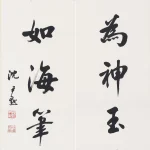 為神玉
如海筆
沈尹默